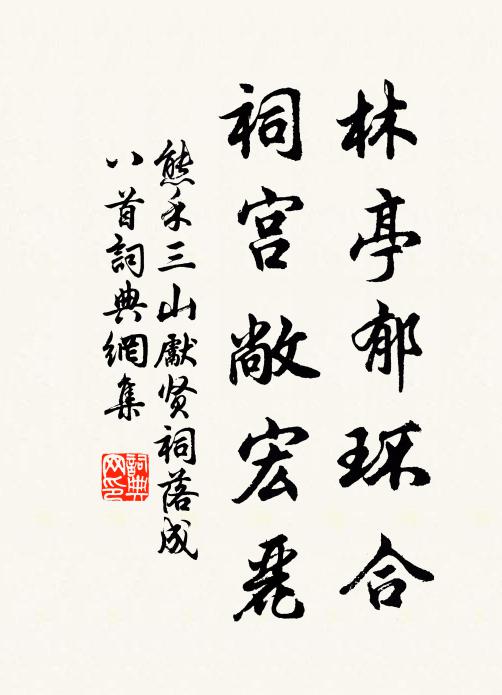 林亭郁环合
祠宫敞宏麗
熊禾三山獻贤祠落成
八首詞典網集
詞典网印